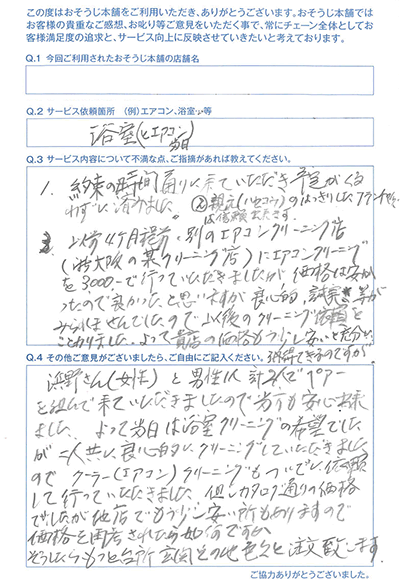 この度はおそうじ本舗をご利用いただき、ありがとうございます。おそうじ本舗では
お客様の貴重なご感想、お叱り等ご意見をいただく事で、常にチェーン全体としてお
客様満足度の追求と、サービス向上に反映させていきたいと考えております。
Q.1 今回ご利用されたおそうじ本舗の店舗名
Q.2 サービス依頼箇所 （例）エアコン、浴室、等
浴室(とエアコン)
Q.3 サービス内容について不満な点、ご指摘があれば教えてください。
1. 約束の時間通りに来ていただき予定がくる
わずに済みました。 ② 親元 のはっきりした
は信頼出来ます。
3. 以前4ケ月程前、別のエアコンクリーニング店
(大阪の某クリーニング店)にエアコンクリーニング
を3,000-で行っていただきましたが価格は安か
ったので良かったと思いますが良心的、誠実さ等が
みられませんでしたので以後のクリーニング依頼を
ことわりました。よって貴店の価格もう少し安いと充分と
Q.4 その他ご意見がございましたら、ご自由にご記入ください。 納得できるのですが
浜野さん(女性)と男性1人計2人でペアー
を組んで来ていただきましたので当方も安心出来
ました。よって当日は浴室クリーニングの希望でした
が二人共に良心的にクリーニングしていただきました
ので クーラー(エアコン)クリーニングもついでに依頼
して行っていただきました。但しカタログ通りの価格
でしたが他店でもう少し安い所もありますので
価格を されたら如何ですか。
そうしたらもっと台所玄関その他色々と注文致します。
ご協力ありがとうございました。